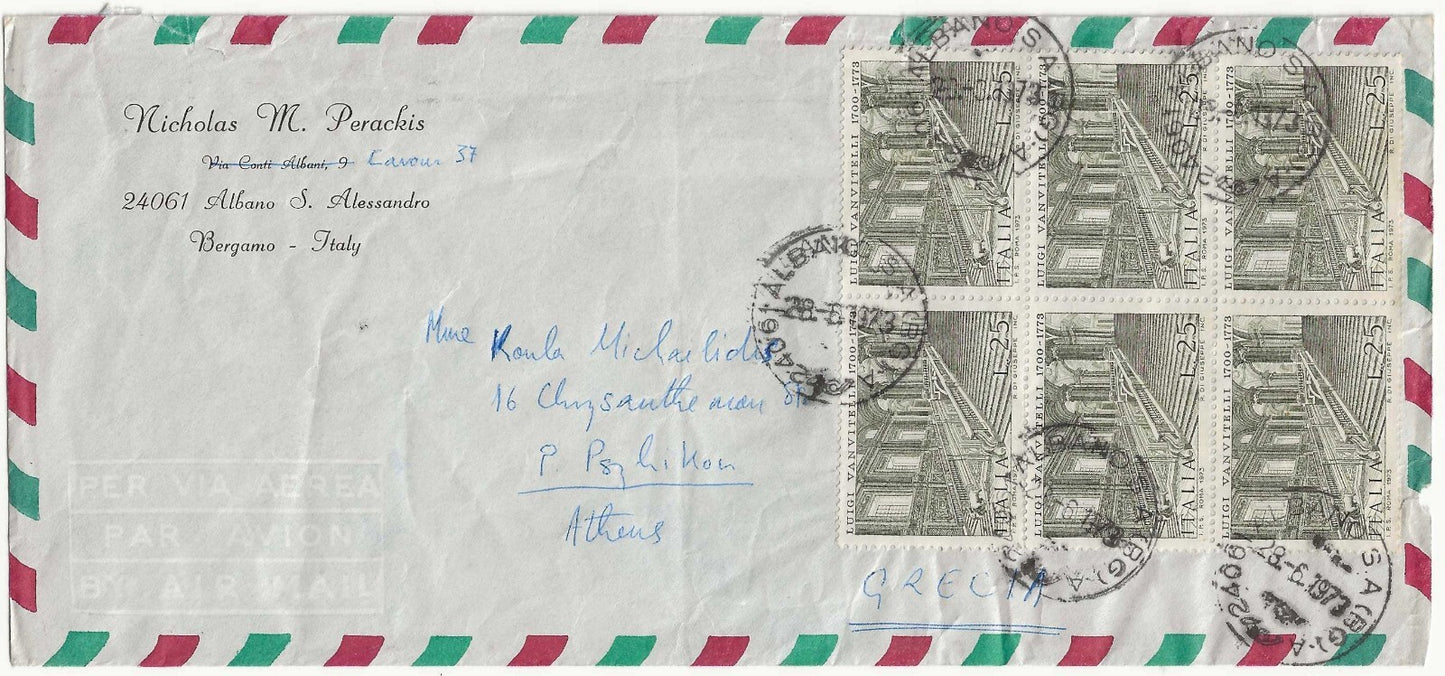 Nicholas M. Perackis
Via Conti Albani, 9 Cavour 37
24061 Albano S. Alessandro
Bergamo - Italy
Mme Koula Michailidis
16 Chrysanthemon St
P. Psyhikon
Athens
GRECIA
PER VIA AEREA
PAR AVION
BY AIR MAIL
LUIGI VANVITELLI 1700-1773
L. 25
ITALIA
I.P.S. ROMA 1973
R. DI GIUSEPPE INC.
LUIGI VANVITELLI 1700-1773
L. 25
ITALIA
I.P.S. ROMA 1973
R. DI GIUSEPPE INC.
LUIGI VANVITELLI 1700-1773
L. 25
ITALIA
I.P.S. ROMA 1973
R. DI GIUSEPPE INC.
LUIGI VANVITELLI 1700-1773
L. 25
ITALIA
I.P.S. ROMA 1973
R. DI GIUSEPPE INC.
LUIGI VANVITELLI 1700-1773
L. 25
ITALIA
I.P.S. ROMA 1973
R. DI GIUSEPPE INC.
LUIGI VANVITELLI 1700-1773
L. 25
ITALIA
I.P.S. ROMA 1973
R. DI GIUSEPPE INC.
ALBANO S.A.
24061 ALBANO S.A. (BG)-A
28-6.1973
24061 ALBANO S.A (BG)-A
28-6.1973